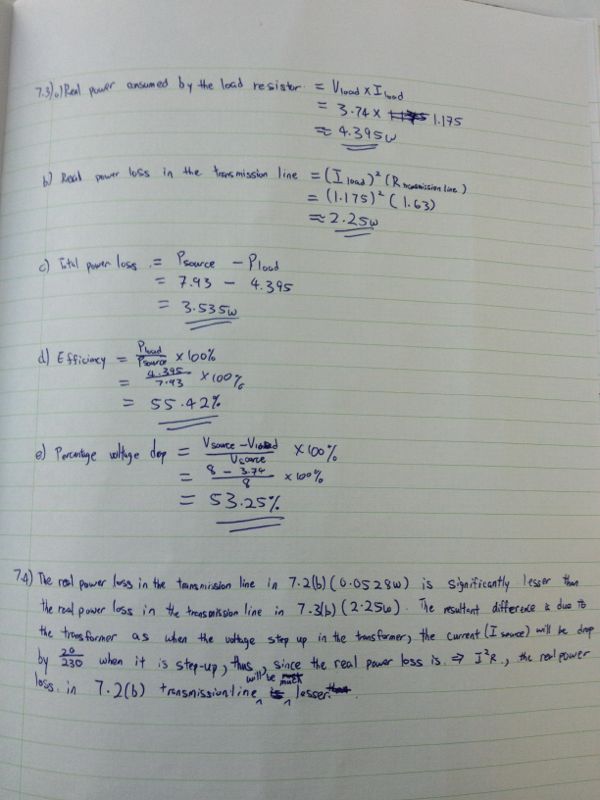 7.3)a) Real power consumed by the load resistor = Vload x Iload
= 3.74 x 1.175
≈ 4.395W
b) Real power loss in the transmission line = (Iload)² (Rtransmission line)
= (1.175)² (1.63)
≈ 2.25W
c) Total power loss = Psource - Pload
= 7.93 - 4.395
= 3.535W
d) Efficiency = Pload/Psource x 100%
= 4.395/7.93 x 100%
= 55.42%
e) Percentage voltage drop = Vsource - Vload/Vsource x 100%
= 8 - 3.74/8 x 100%
= 53.25%
7.4) The real power loss in the transmission line in 7.2(b) (0.0528W) is significantly lesser than
the real power loss in the transmission line in 7.3(b) (2.25W). The resultant difference is due to
the transformer as when the voltage step up in the transformer, the current (Isource) will be drop
by 20/230 when it is step-up, thus, since the real power loss is ⇒ I²R, the real power
loss in 7.2(b) transmission line will be much lesser.